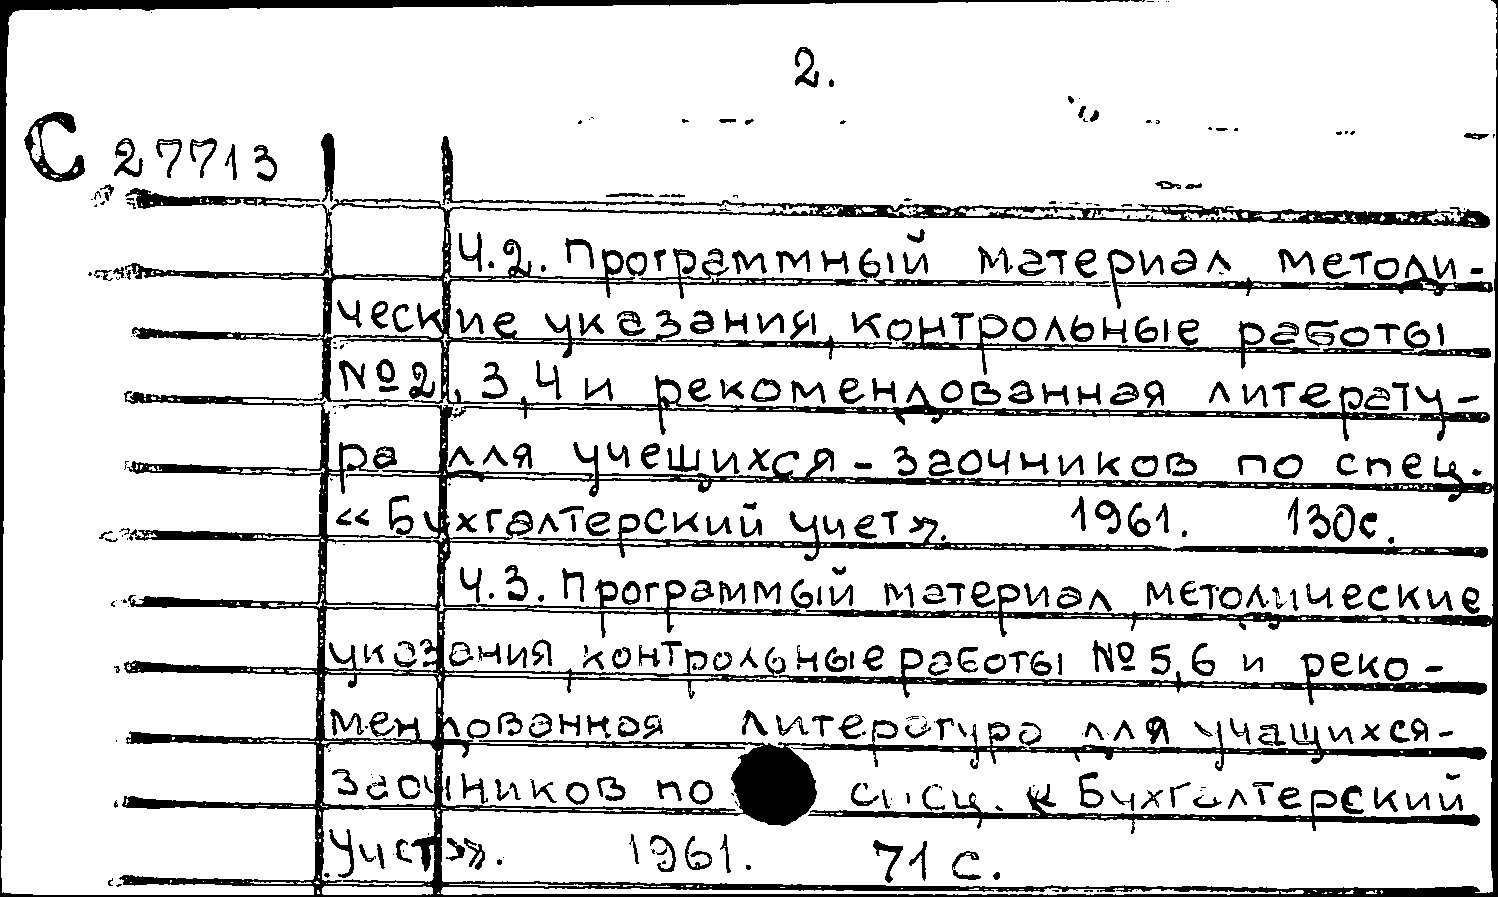 2.
С 27713
Ч.2. Программный материал, методи-
ческие указания, контрольные работы
№2, 3, 4 и рекомендованная литерату-
ра для учещихся-заочников по спец.
«Бухгалтерский учет». 1961. 130с.
Ч.3. Программый материал, методические
указания, контрольные работы №5,6 и реко-
мендованная литература для учащихся-
заочников по спец. «Бухгалтерский
Учет». 1961. 71 с.